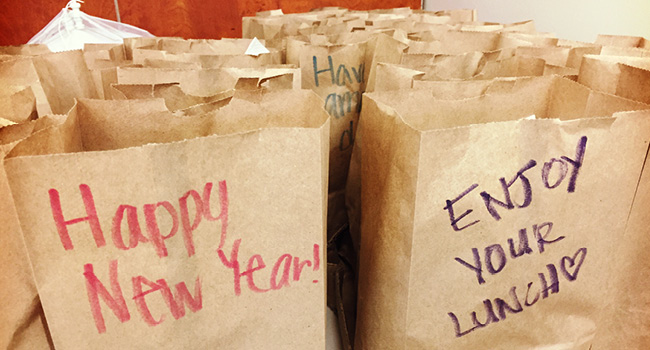 Happy
New Year!
Have
ENJOY
YOUR
LUNCH♡